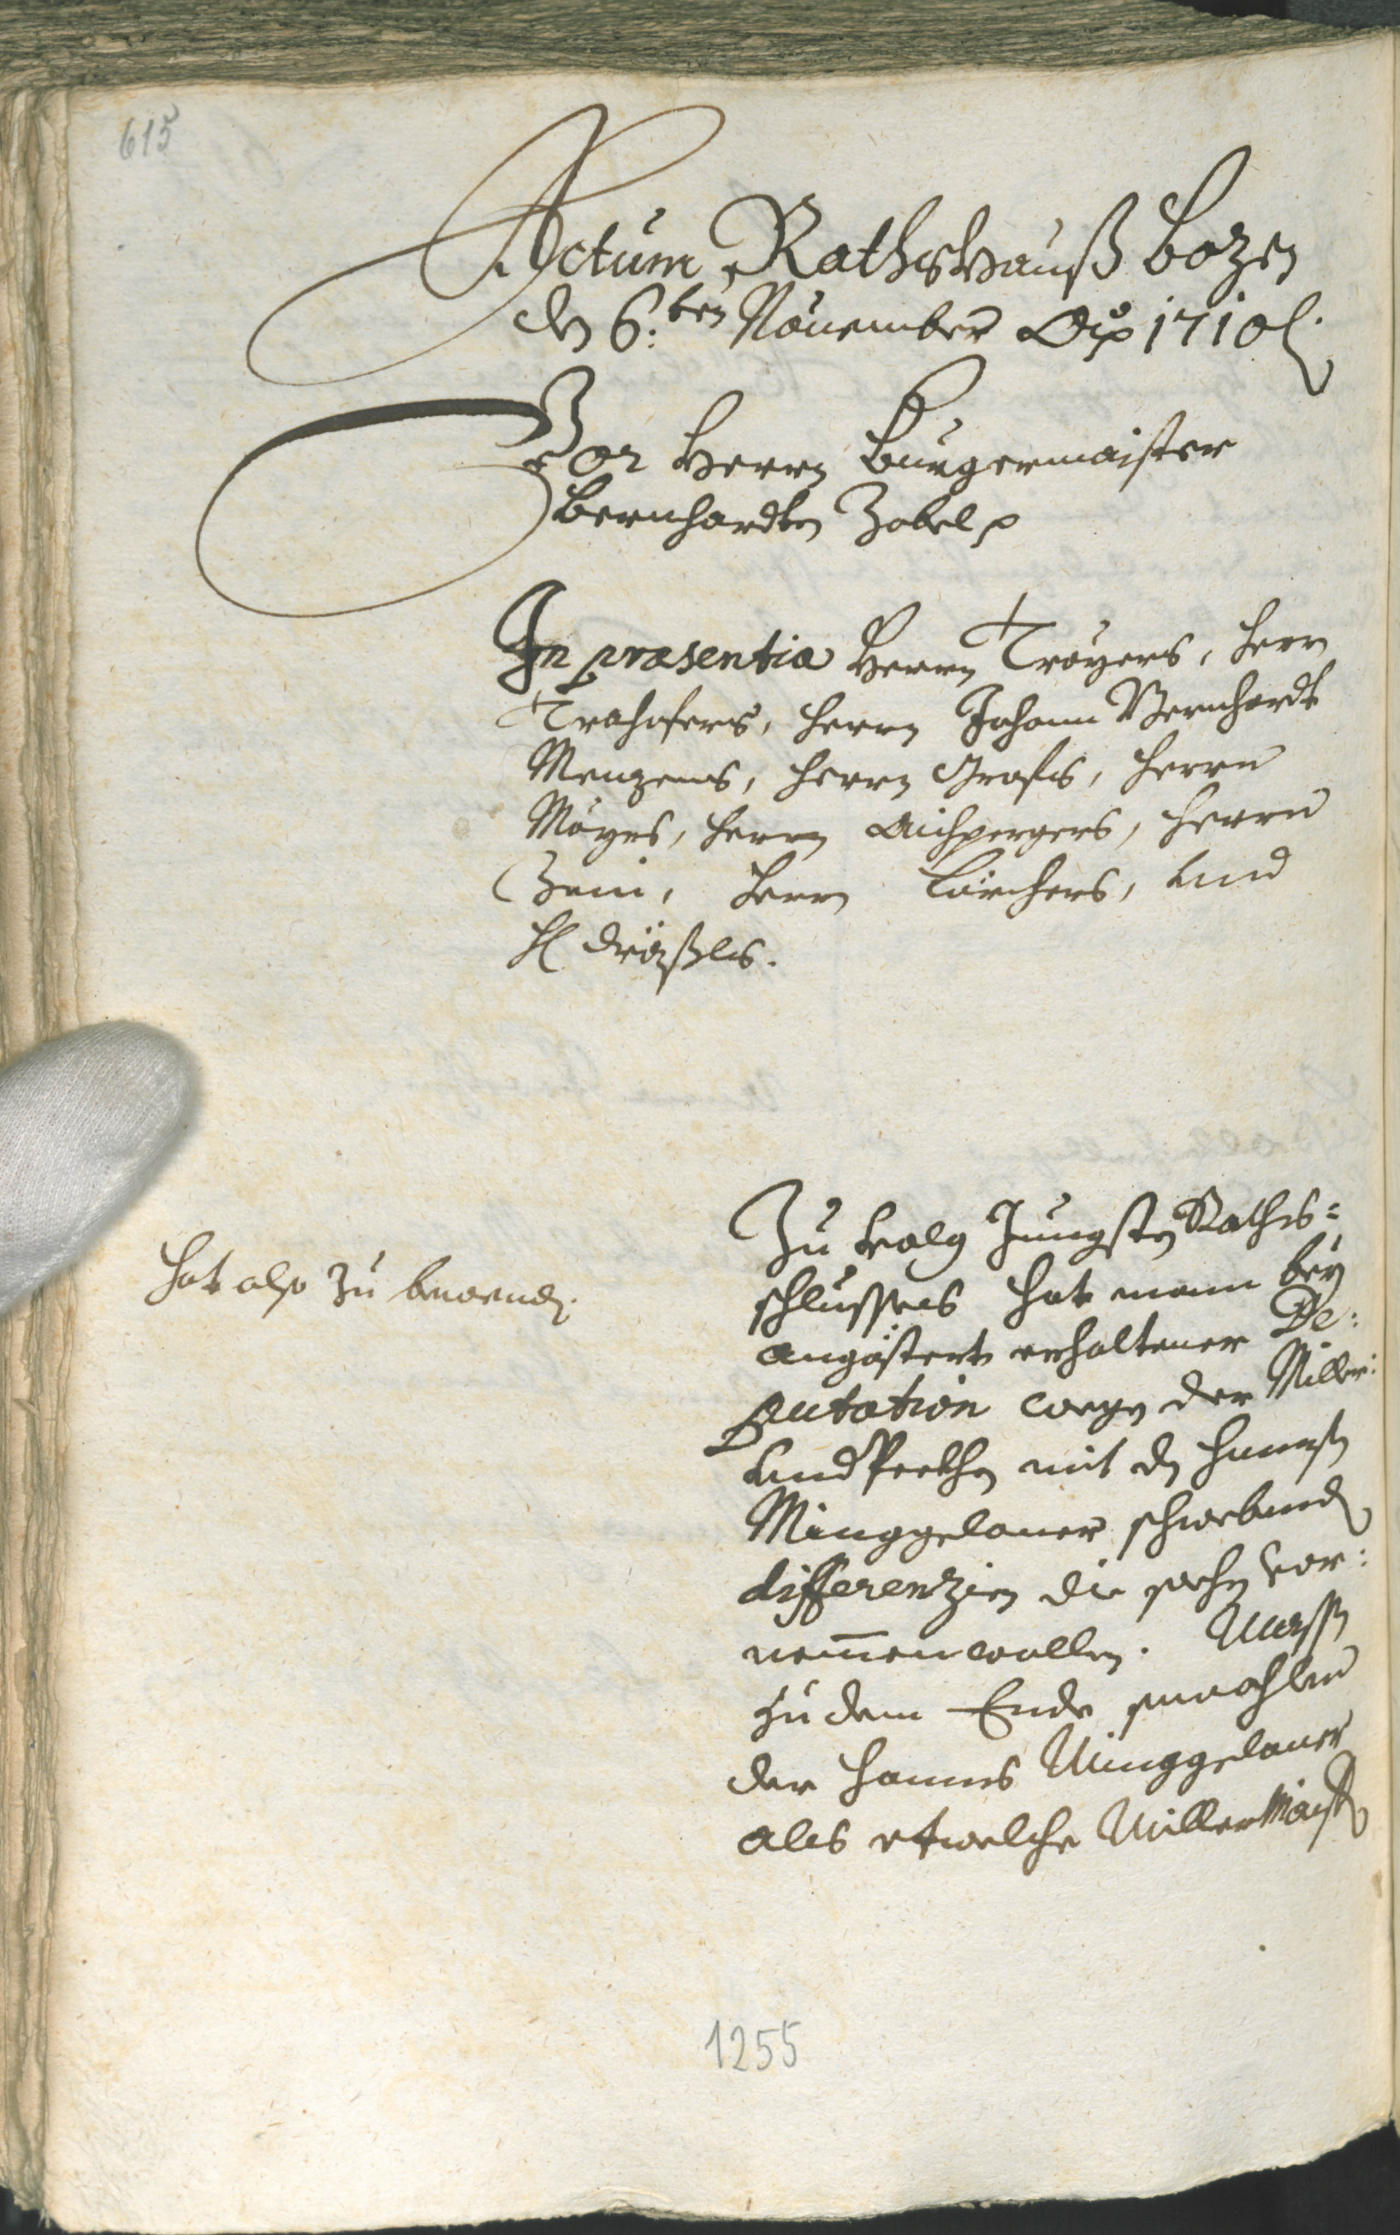 615
Actum Rathshauß Bozen
den 6:ten November Ao 1710
Vor Herrn Burgermaister
Bernhardten Zobel
In præsentia Herrn Troyers, herrn
Trahofers, herrn Johann Bernhardt
Menzens, herrn Grafs, herrn
Mayrs, herrn Aichpergers, herrn
Zeni, herrn Lärchers, und
H
hat also zu bewenden.
Zu volg Jungsten Raths=
schlusses hat mann bey
angöstert erhaltener De:
putation wegen der Miller:
und Pekhen mit den Hannsen
Minggelauer schwebenden
differenzien die sachen vor:
nemmen wollen. Massen
zu dem Ende sowohlen
der Hanns Minggelauer
als etwelche Miller Maister
1255